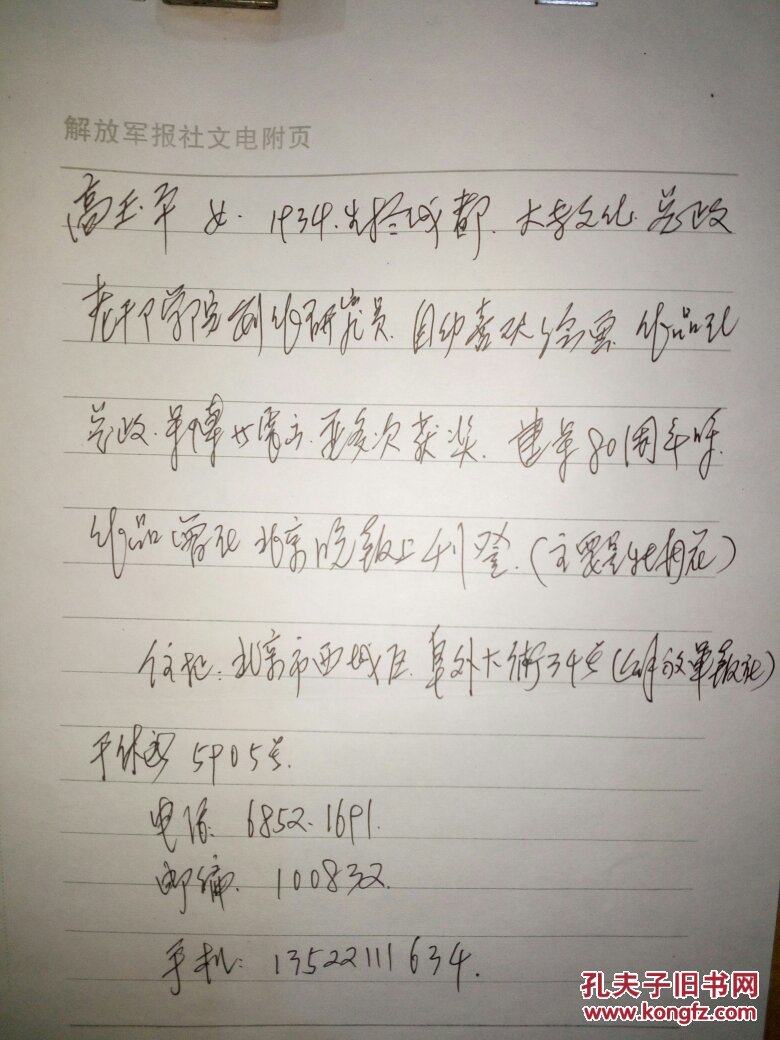 解放军报社文电附页
高玉平 女. 1934.生於成都. 大学文化. 总政
老干部学院创作研究员. 自幼喜欢绘画. 作品在
总政.军博书展示.并多次获奖. 建军80周年时.
作品曾在北京晚报上刊登.(主要是牡丹花)
住地:北京市西城区.阜外大街34号(解放军报社)
干休所 5905号.
电话. 6852.1691.
邮编. 100832.
手机: 13522111634.
孔夫子旧书网
www.kongfz.com